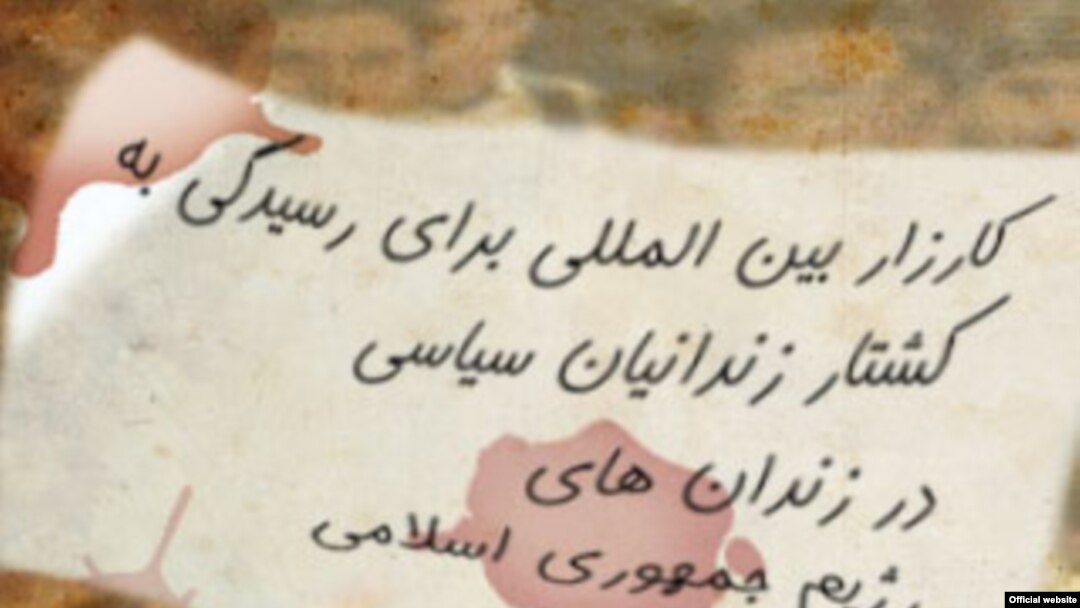 کارزار بین المللی برای رسیدگی به
کشتار زندانیان سیاسی
در زندان های
رژیم جمهوری اسلامی
Official website